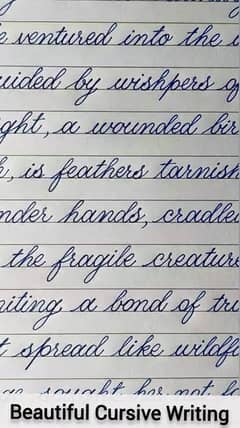 e ventured into the
uided by wishpers of
ght, a wounded bir
, is feathers tarnish
nder hands, cradle
the fragile creature
iting a bond of tru
t spread like wildfi
sought her not
Beautiful Cursive Writing